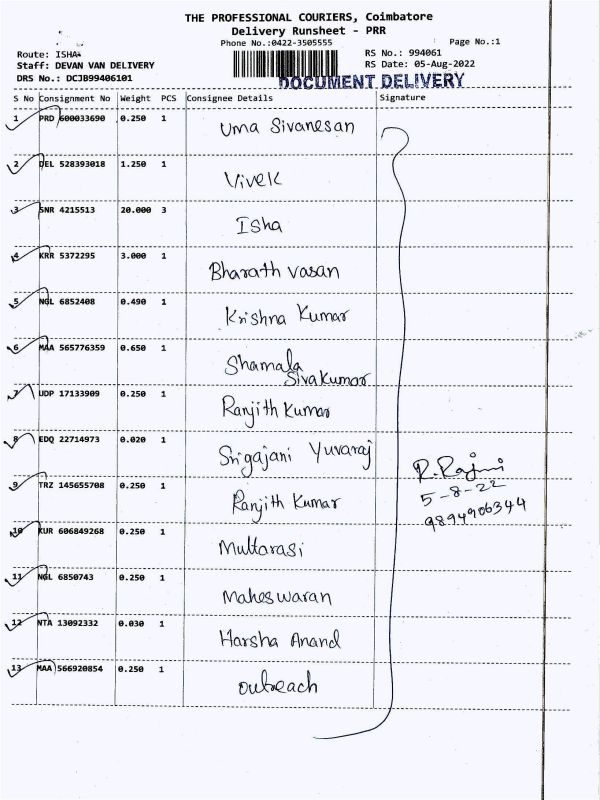 THE PROFESSIONAL COURIERS, Coimbatore
Delivery Runsheet - PRR
Phone No.:0422-3505555 Page No.:1
Route: ISHA RS No.: 994061
Staff: DEVAN VAN DELIVERY RS Date: 05-Aug-2022
DRS No.: DCJB99406101 DOCUMENT DELIVERY
S No Consignment No Weight PCS Consignee Details Signature
1 PRD 600033690 0.250 1 Uma Sivanesan
2 DEL 528393018 1.250 1 Vivek
3 SNR 4215513 20.000 3 Isha
4 KRR 5372295 3.000 1 Bharath vasan
5 NGL 6852408 0.490 1 Krishna Kumar
6 MAA 565776359 0.650 1 Shamala
Sivakumar
7 UDP 17133909 0.250 1 Ranjith Kumar
8 EDQ 22714973 0.020 1 Srigajani Yuvaraj
R. Rajini
5-8-22
9 TRZ 145655708 0.250 1 Ranjith Kumar
9894906344
10 KUR 606849268 0.250 1 Multarasi
11 NGL 6850743 0.250 1 Maheswaran
12 NTA 13092332 0.030 1 Harsha Anand
13 MAA 566920854 0.250 1 outreach